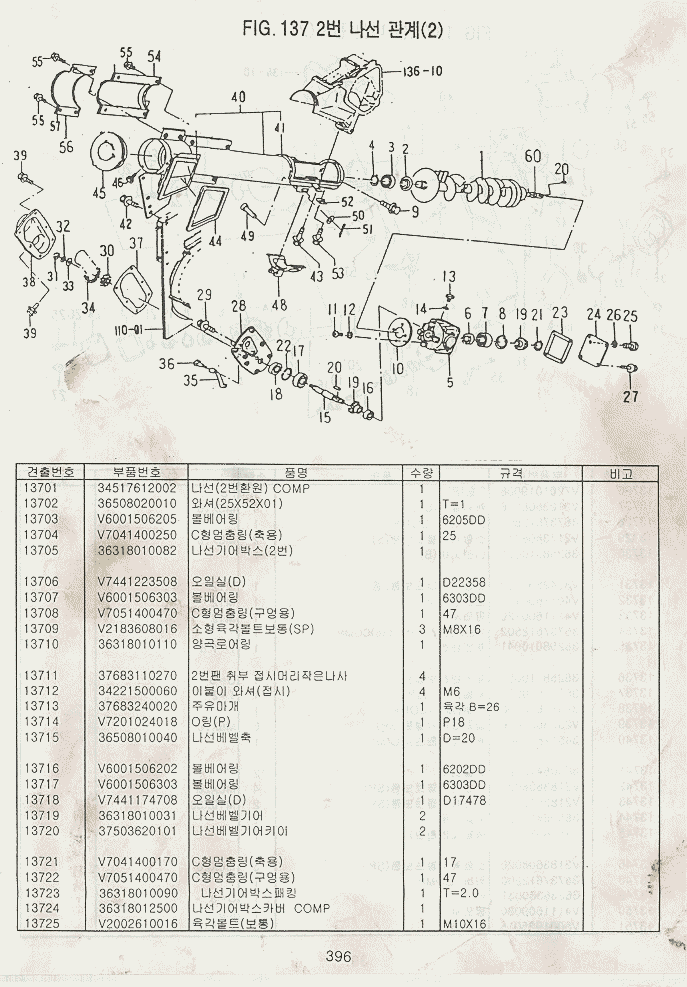 FIG. 137 2번 나선 관계(2)
55
55
54
136-10
40
57
56
41
39
4
3
2
1
60
20
45
46
42
44
49
52
50
51
9
32
37
30
31
33
34
38
43
53
48
39
110-01
29
28
13
14
11
12
6
7
8
19
21
23
24
26
25
10
5
27
36
35
22
17
18
20
15
19
16
견출번호 부품번호 품명 수량 규격 비고
13701 34517612002 나선(2번환원) COMP 1
13702 36508020010 와셔(25X52X01) 1 T=1
13703 V6001506205 볼베어링 1 6205DD
13704 V7041400250 C형멈춤링(축용) 1 25
13705 36318010082 나선기어박스(2번) 1
13706 V7441223508 오일실(D) 1 D22358
13707 V6001506303 볼베어링 1 6303DD
13708 V7051400470 C형멈춤링(구멍용) 1 47
13709 V2183608016 소형육각볼트보통(SP) 3 M8X16
13710 36318010110 양곡로어링 1
13711 37683110270 2번팬 취부 접시머리작은나사 4
13712 34221500060 이붙이 와셔(접시) 4 M6
13713 37683240020 주유마개 1 육각 B=26
13714 V7201024018 O링(P) 1 P18
13715 36508010040 나선베벨축 1 D=20
13716 V6001506202 볼베어링 1 6202DD
13717 V6001506303 볼베어링 1 6303DD
13718 V7441174708 오일실(D) 1 D17478
13719 36318010031 나선베벨기어 2
13720 37503620101 나선베벨기어키이 2
13721 V7041400170 C형멈춤링(축용) 1 17
13722 V7051400470 C형멈춤링(구멍용) 1 47
13723 36318010090 나선기어박스패킹 1 T=2.0
13724 36318012500 나선기어박스카버 COMP 1
13725 V2002610016 육각볼트(보통) 1 M10X16
396